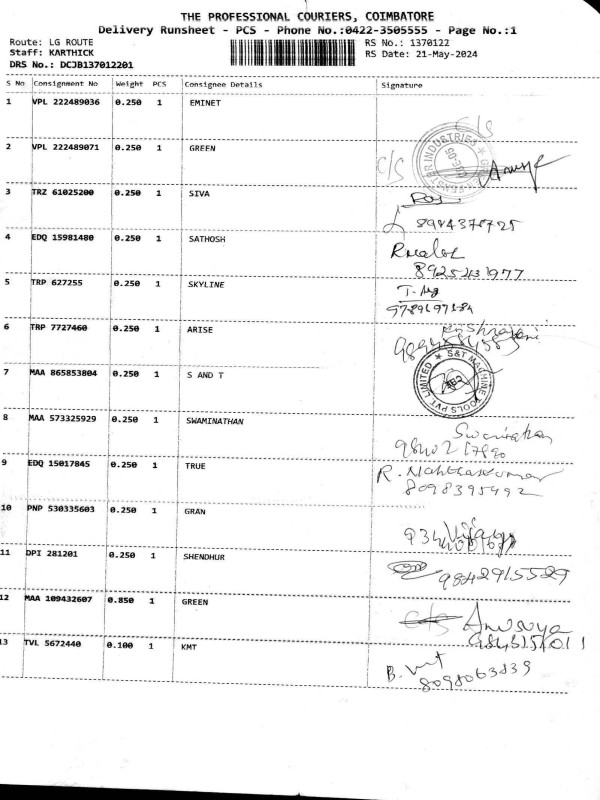 THE PROFESSIONAL COURIERS, COIMBATORE
Delivery Runsheet - PCS - Phone No.:0422-3505555 - Page No.:1
Route: LG ROUTE
Staff: KARTHICK
DRS No.: DCJB137012201
RS No.: 1370122
RS Date: 21-May-2024
S No Consignment No Weight PCS Consignee Details Signature
1 VPL 222489036 0.250 1 EMINET C/S
2 VPL 222489071 0.250 1 GREEN C/S
3 TRZ 61025200 0.250 1 SIVA
4 EDQ 15981480 0.250 1 SATHOSH
5 TRP 627255 0.250 1 SKYLINE
6 TRP 7727460 0.250 1 ARISE
7 MAA 865853804 0.250 1 S AND T
S&T MACHINE TOOLS PVT LIMITED
8 MAA 573325929 0.250 1 SWAMINATHAN
9 EDQ 15017845 0.250 1 TRUE
8098395492
10 PNP 530335603 0.250 1 GRAN
11 DPI 281201 0.250 1 SHENDHUR
9842915529
12 MAA 109432607 0.850 1 GREEN C/S Anusuya
13 TVL 5672440 0.100 1 KMT
8098063839